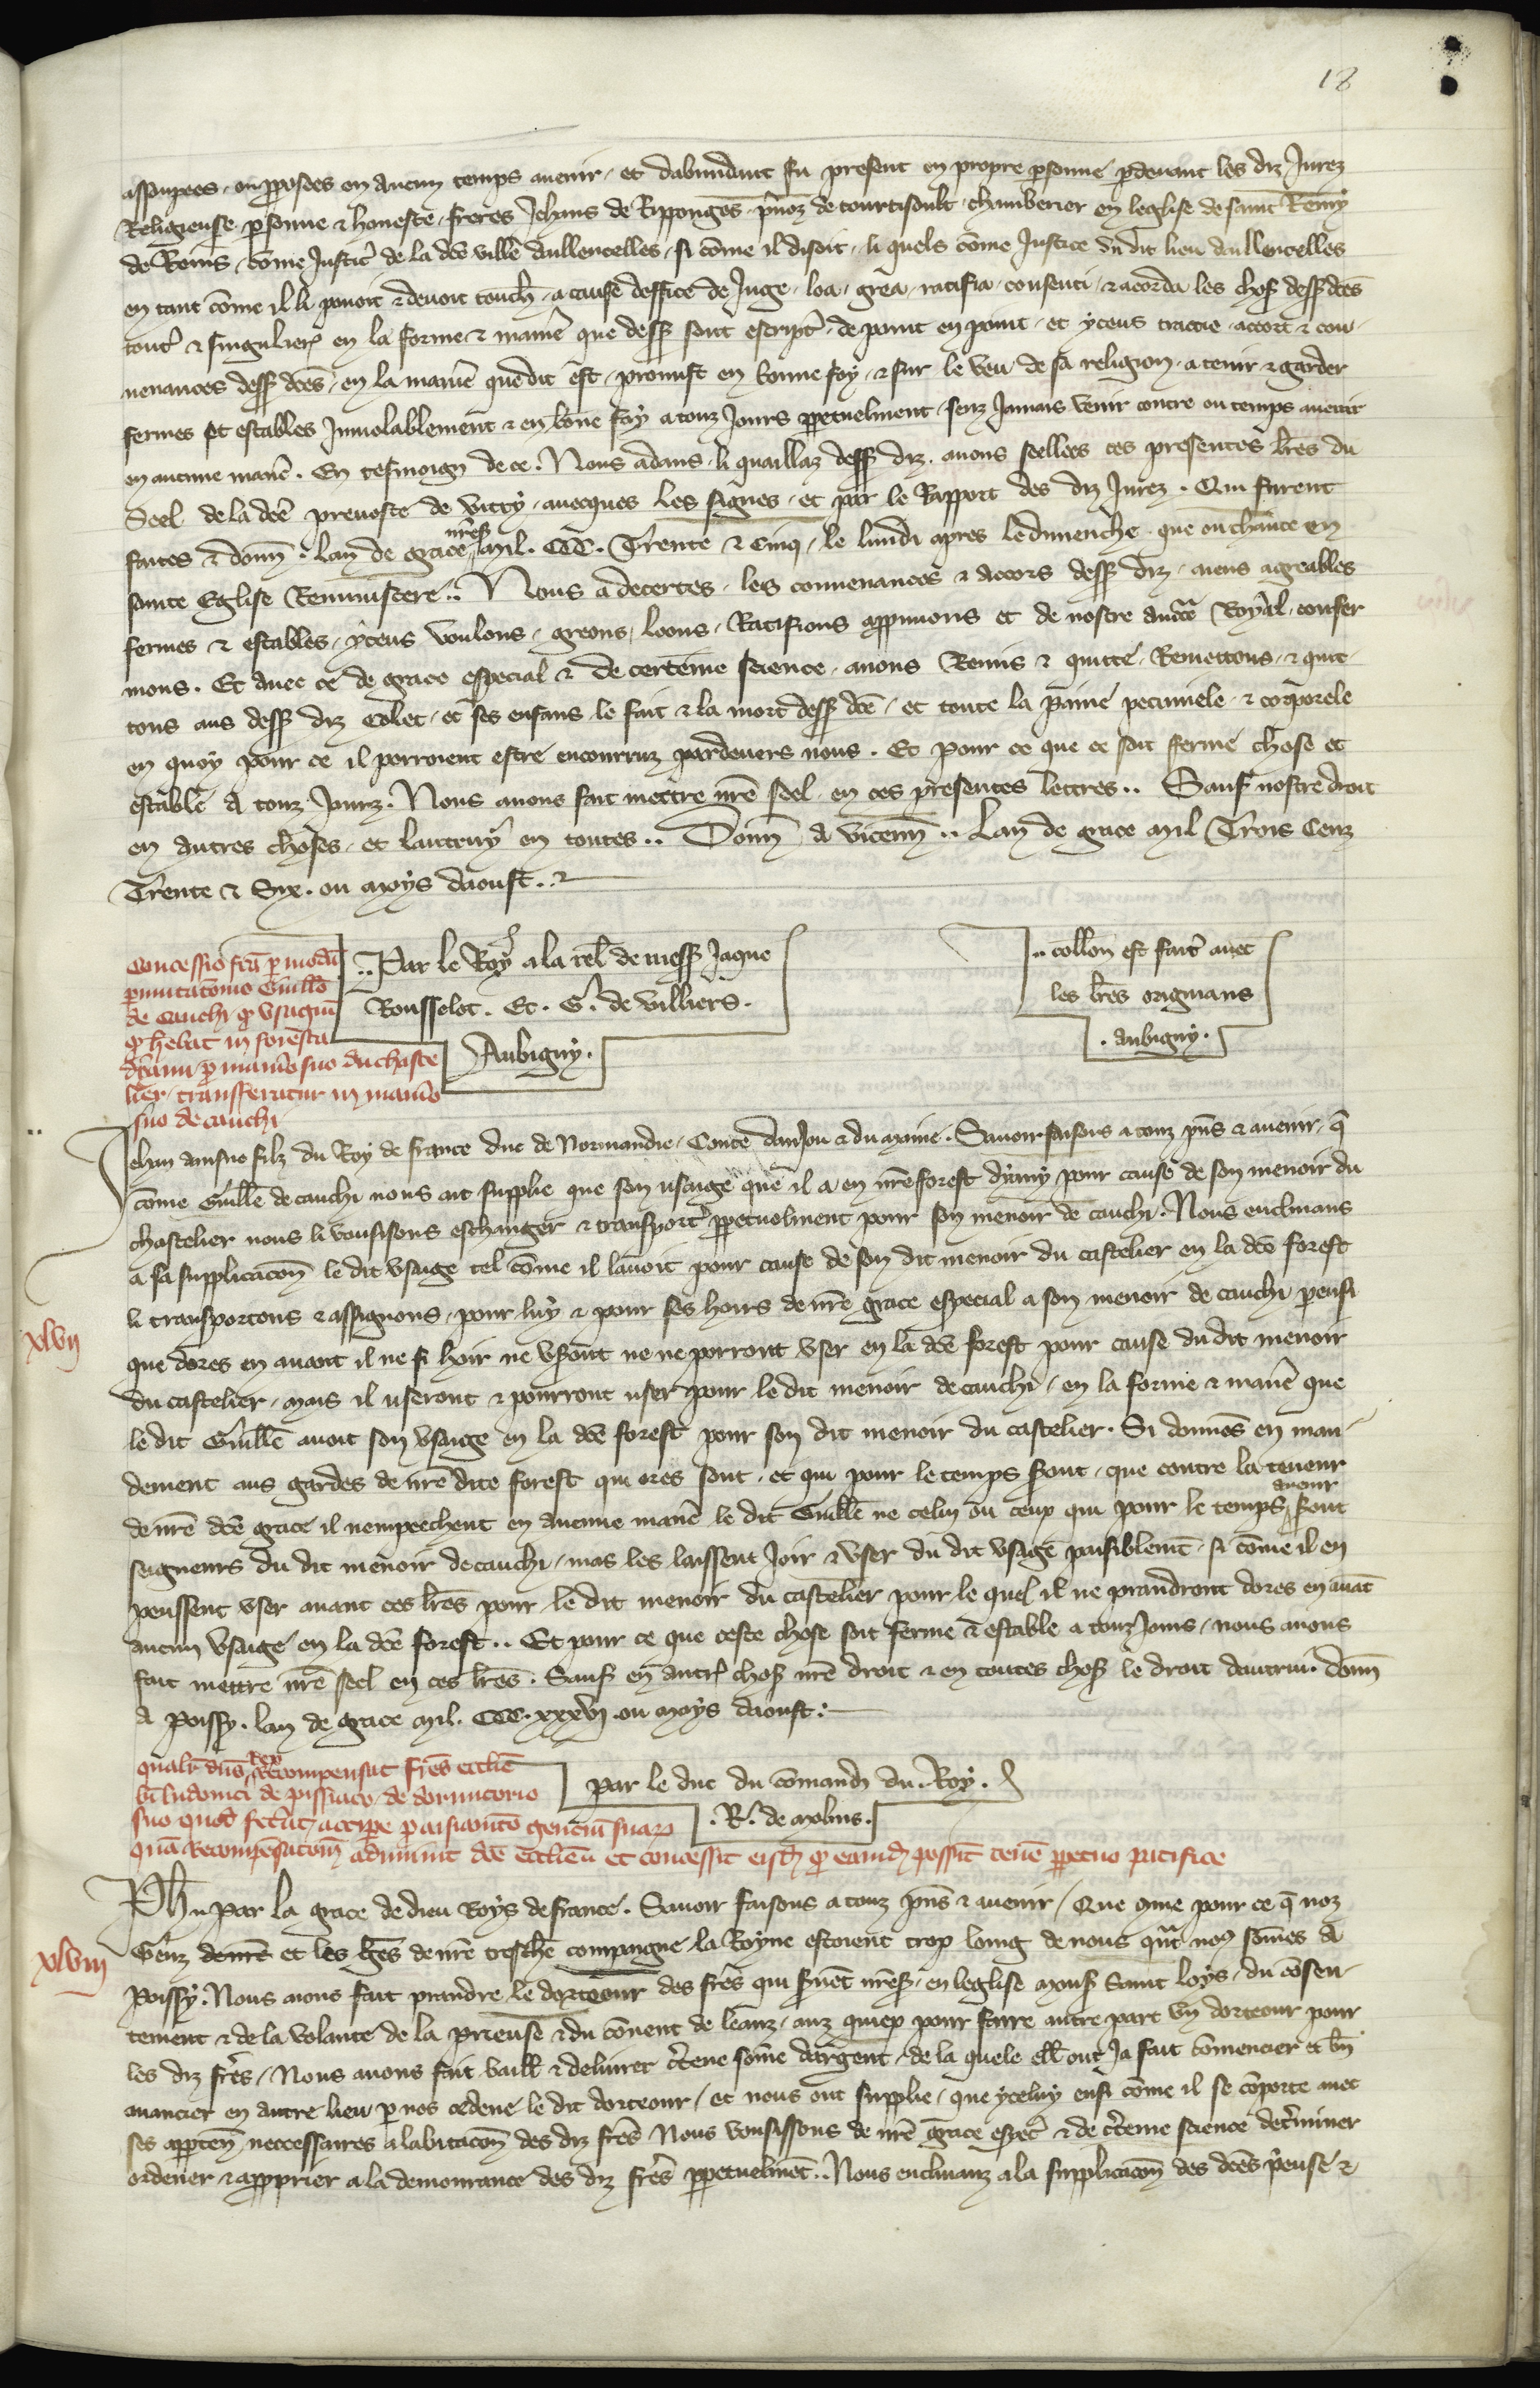 18
assonpees ou pposees en aucun temps auenir et dabundant fu present en propre psonne pdeuant les diz Jurez
Religieuse psonne & honeste freres Jehans de Ripponges pnoz de courtisoult chamberier en leglise de saint Remy
de Reins come Justic de la dce ville daullencelles si come il disoit li quels come Justice du dit lieu daullencelles
en tant come il li pouoit & deuoit touch a cause doffice de Juge loa grea ratifia consenti & acorda les chos dess dces
tout & singulier en la forme & manie que dess sont escript de point en point et yceus traictie accort & con
uenances dess dces en la manie que dit est promist en bonne foy & sur le veu de sa religion a tenir & garder
fermes et estables Inuiolablement & en bone foy a touz Jours ppetuelment senz Jamais venir contre ou temps auenir
en aucune manie. En tesmoign de ce. Nous adans li quaillaz dess diz auons seellees ces presentes lres du
Seel de la dce preuoste de Vitry auecques les signes et par le Rapport des diz Jurez. Qui furent
faites & donn. lan de grace mil. CCC. Trente & Cinq le lundi apres le dimenche que on chante en
sainte Eglise Reminiscere.. Nous adecertes les conuenances & accors dess diz aiens agreables
fermes & estables yceus voulons greons loons Ratifions appruuons et de nostre aucte Royal confer
mons. Et auec ce de grace especial & de certeine science auons Remis & quitte Remettons & quit
tons aus dess diz Colet et ses enfans le fait & la mort dess dce et toute la paine pecuniele & corporele
en quoy pour ce il porroient estre encourruz pardeuers nous. Et pour ce que ce soit ferme chose et
estable a touz Jourz. Nous auons fait mettre nre seel en ces presentes lettres.. Sauf nostre droit
en autres choses et lautruy en toutes.. Donn a Vicenn.. Lan de grace mil Trois Cenz
Trente & Six. ou moys daoust..
Concessio fca p modu
pmutacois Guillo
de Cauchi q usagiu
q hebat in foresta
p manio suo du chaste
lier transferatur in manio
suo de cauchi
..Par le Roy a la rel de mess Jaque
Rousselot. Et. G. de Villiers.
Aubigny.
..collon est fait auec
les lres originans
.aubigny.
Jehan ainsne filz du Roy de france duc de Normandie Conte danJou & du maine. Sauoir faisons a touz pns & auenir q
come Guille de cauchi nous ait supplie que son usaige que il a en nre forest pour cause de son menoir du
chastelier nous li vousissons eschanger & transport ppetuelment pour son menoir de cauchi. Nous enclinans
a sa supplicacon le dit usaige tel come il lauoit pour cause de son dit menoir du castelier en la dce forest
li transportons & assignons pour luy & pour ses hoirs de nre grace especial a son menoir de cauchi pensi
que dores en auant il ne si hoir ne vseront ne ne porront vser en la dce forest pour cause du dit menoir
du castelier mais il useront & pourront user pour le dit menoir de cauchi en la forme & manie que
le dit Guille auoit son vsaige en la dce forest pour son dit menoir du castelier. Si donnes en man
dement aus gardes de nre dite forest qui ores sont et qui pour le temps seront que contre la teneur
de nre dce grace il nempeechent en aucune manie le dit Guille ne celui ou ceux qui pour le temps auenir seront
seigneurs du dit menoir de cauchi mas les laissent Joir & vser du dit vsage paisiblemt si come il en
peussent vser auant ces lres pour le dit menoir du castelier pour le quel il ne prandront dores en auat
aucun vsaige en la dce forest.. Et pour ce que ceste chose soit ferme & estable a touz Jours nous auons
fait mettre nre seel en ces lres. Sauf en autr chos nre droit & en toutes chos le droit dautrui. donn
a Poissy. lan de grace mil. CCC. xxxvi ou moys daoust.
xlvii
qualr dns Rex Recompensat fres ecclie
bi ludouici de pissiaco de dormitorio
suo quod fecerat accipe p
qua Recompesacom dce ecclieu et concessit eisd q eamd possit tene ppetuo pacifice
par le duc du comand du. Roy.
.R. de molins.
Ph par la grace de dieu Roys de france. Sauoir faisons a touz pns & auenir Que come pour ce q noz
Genz denre et les gens de nre treschie compaigne la Royne estoient trop loing de nous qnt nos somes a
Poissy. Nous auons fait prandre le dorteour des fres qui en leglise mons Saint Loys du cosen
tement & de la volante de la prieuse & du couent de leanz pour faire autre part vn dorteour pour
les diz fres Nous auons fait baill & deliurer ctene some dargent de la quele ell ont Ja fait comencier et bn
auancier en autre lieu p nos le dit dorteour et nous ont supplie que yceluy ensi come il se comporte auec
ses appten neccessaires a labitacon des diz fres Nous vousissons de nre grace espec & de cteine science determiner
ordener & approprier a la demourance des diz fres ppetuelmet.. Nous enclinanz a la supplicacon des dces prieuse &
xlviii